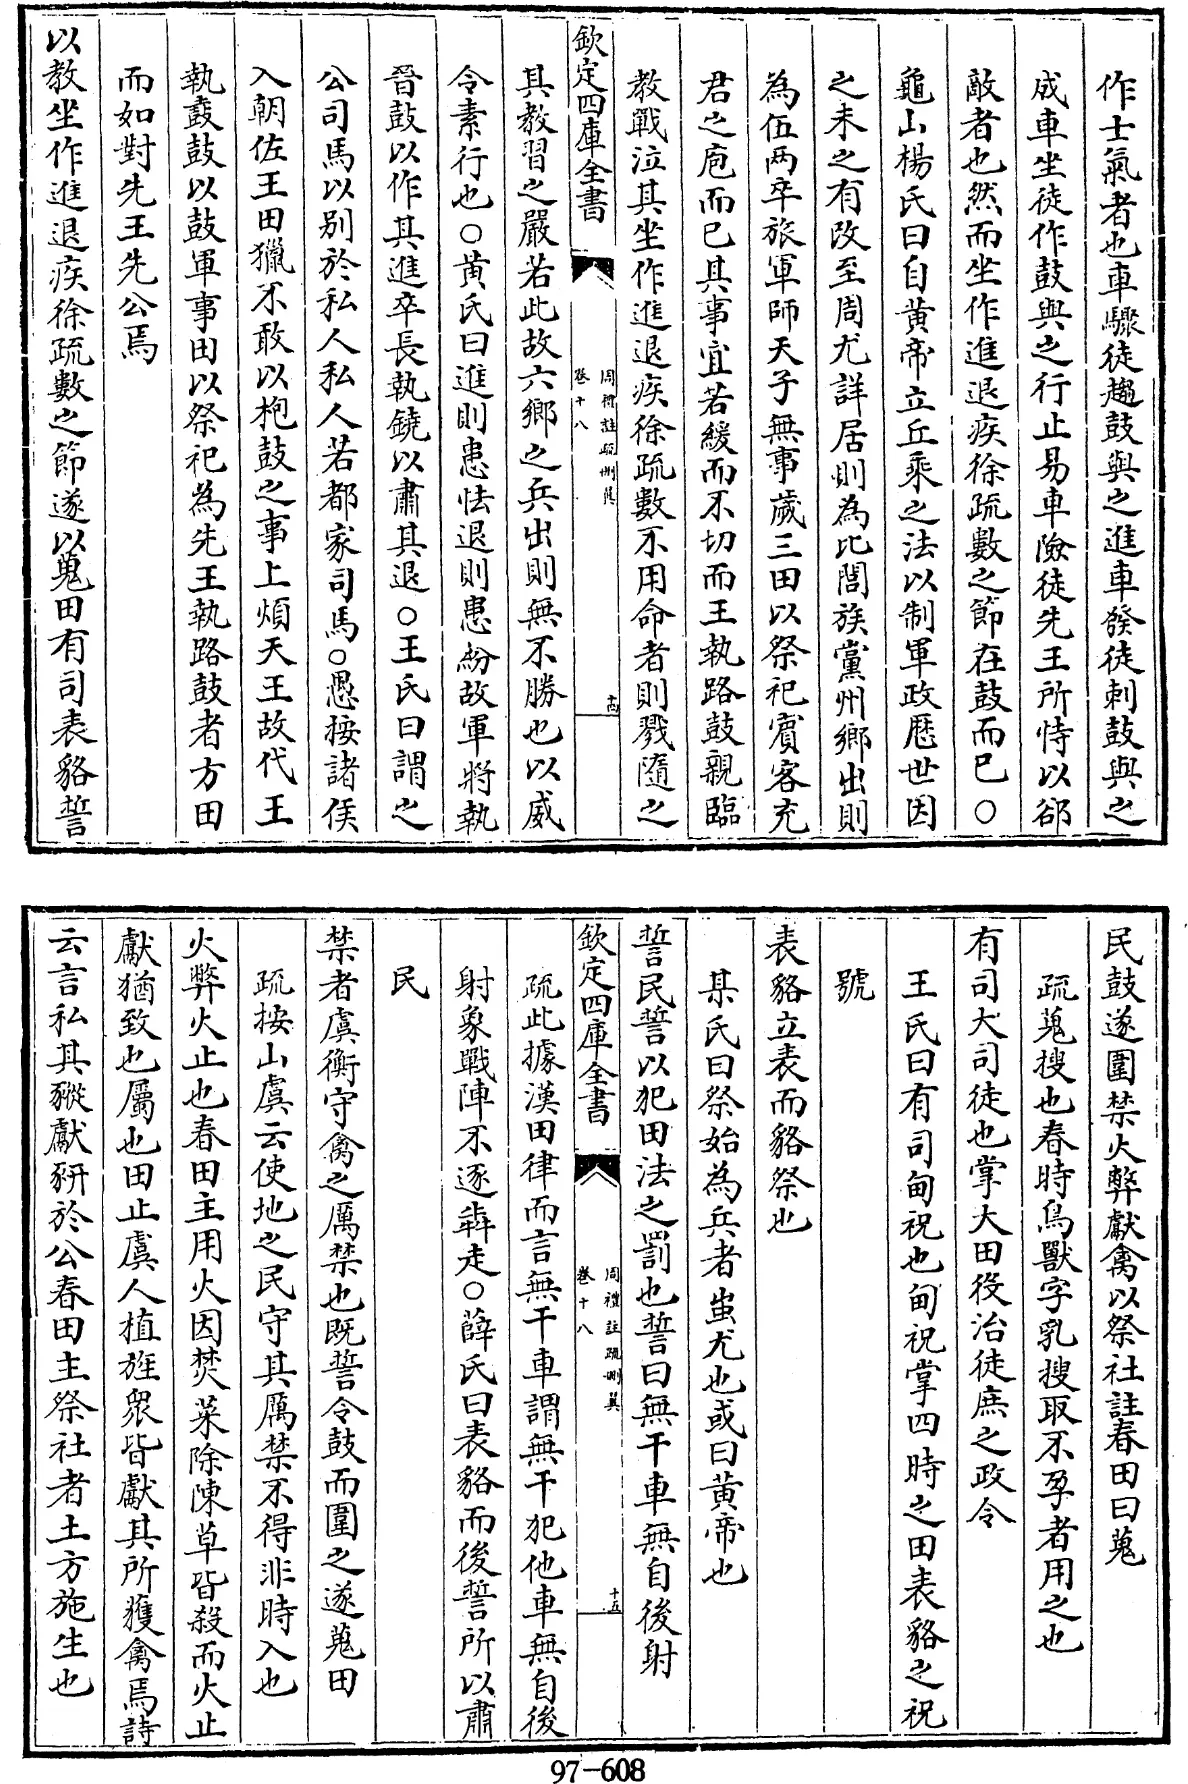 作士氣者也車驟徒趨鼓與之進車發徒刺鼓與之
成車坐徒作鼓與之行止易車險徒先王所恃以郤
敵者也然而坐作進退疾徐疏數之節在鼓而已〇
龜山楊氏曰自黄帝立丘乘之法以制軍政歷世因
之未之有改至周尤詳居則為比閭族黨州鄉出則
為伍兩卒旅軍師天子無事歲三田以祭祀賓客充
君之庖而已其事宜若緩而不切而王執路鼓親臨
教戰泣其坐作進退疾徐疏數不用命者則戮隨之
欽定四庫全書
周禮註疏刪翼
卷十八
十四
其教習之嚴若此故六鄉之兵出則無不勝也以威
令素行也〇黄氏曰進則患怯退則患紛故軍將執
晉鼓以作其進卒長執鐃以肅其退〇王氏曰謂之
公司馬以别於私人私人若都家司馬〇愚按諸侯
入朝佐王田獵不敢以枹鼓之事上煩天王故代王
執鼖鼓以鼓軍事田以祭祀為先王執路鼓者方田
而如對先王先公焉
以教坐作進退疾徐疏數之節遂以蒐田有司表貉誓
民鼓遂圍禁火弊獻禽以祭社註春田曰蒐
疏蒐搜也春時鳥獸字乳搜取不孕者用之也
有司大司徒也掌大田役治徒庶之政令
王氏曰有司甸祝也甸祝掌四時之田表貉之祝
號
表貉立表而貉祭也
某氏曰祭始為兵者蚩尤也或曰黄帝也
誓民誓以犯田法之罰也誓曰無干車無自後射
欽定四庫全書
周禮註疏刪翼
卷十八
十五
疏此據漢田律而言無干車謂無干犯他車無自後
射象戰陣不逐奔走〇薛氏曰表貉而後誓所以肅
民
禁者虞衡守禽之厲禁也既誓令鼓而圍之遂蒐田
疏按山虞云使地之民守其厲禁不得非時入也
火弊火止也春田主用火因焚萊除陳草皆殺而火止
獻猶致也屬也田止虞人植旌衆皆獻其所獲禽焉詩
云言私其豵獻豜於公春田主祭社者土方施生也
97-608